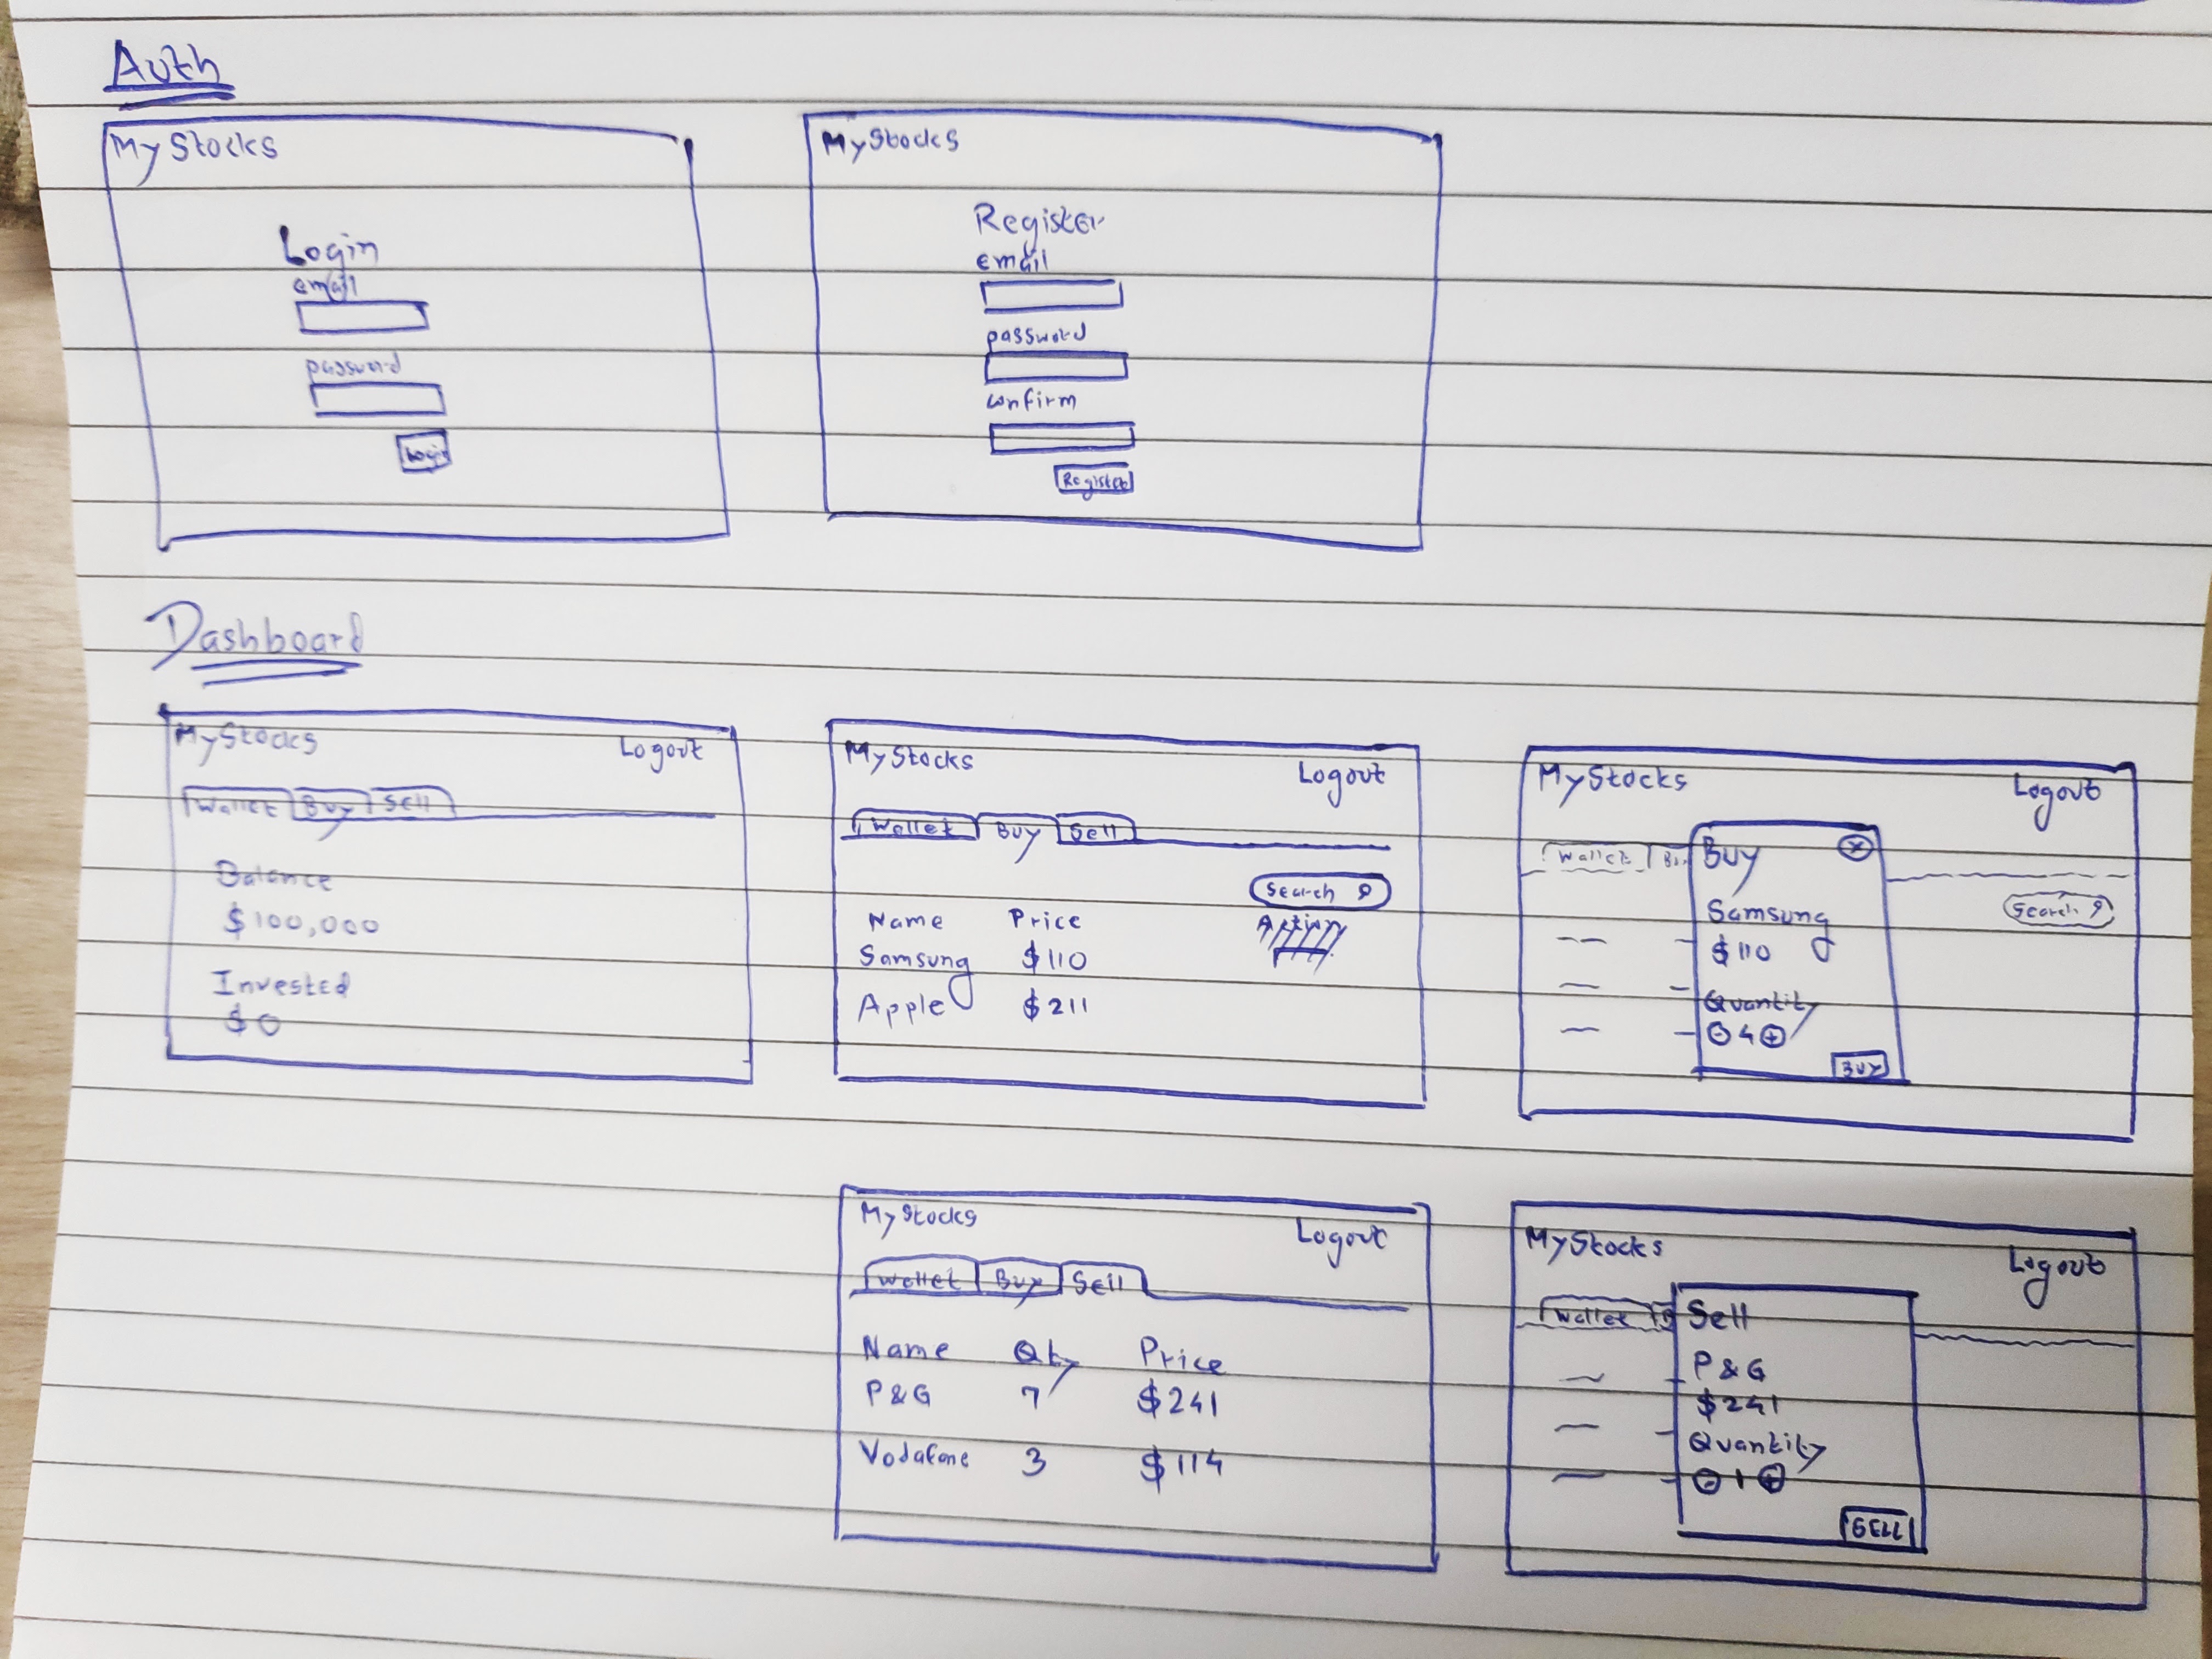 Auth
MyStocks
Login
email
password
Login
MyStocks
Register
email
password
confirm
Register
Dashboard
MyStocks Logout
Wallet Buy Sell
Balance
$100,000
Invested
$0
MyStocks Logout
Wallet Buy Sell
Search
Name Price Action
Samsung $110
Apple $211
MyStocks Logout
Wallet
Search
Buy
Samsung
$110
Quantity
- 4 +
BUY
MyStocks Logout
Wallet Buy Sell
Name Qty Price
P&G 7 $241
Vodafone 3 $114
MyStocks Logout
Wallet
Sell
P&G
$241
Quantity
- 1 +
SELL